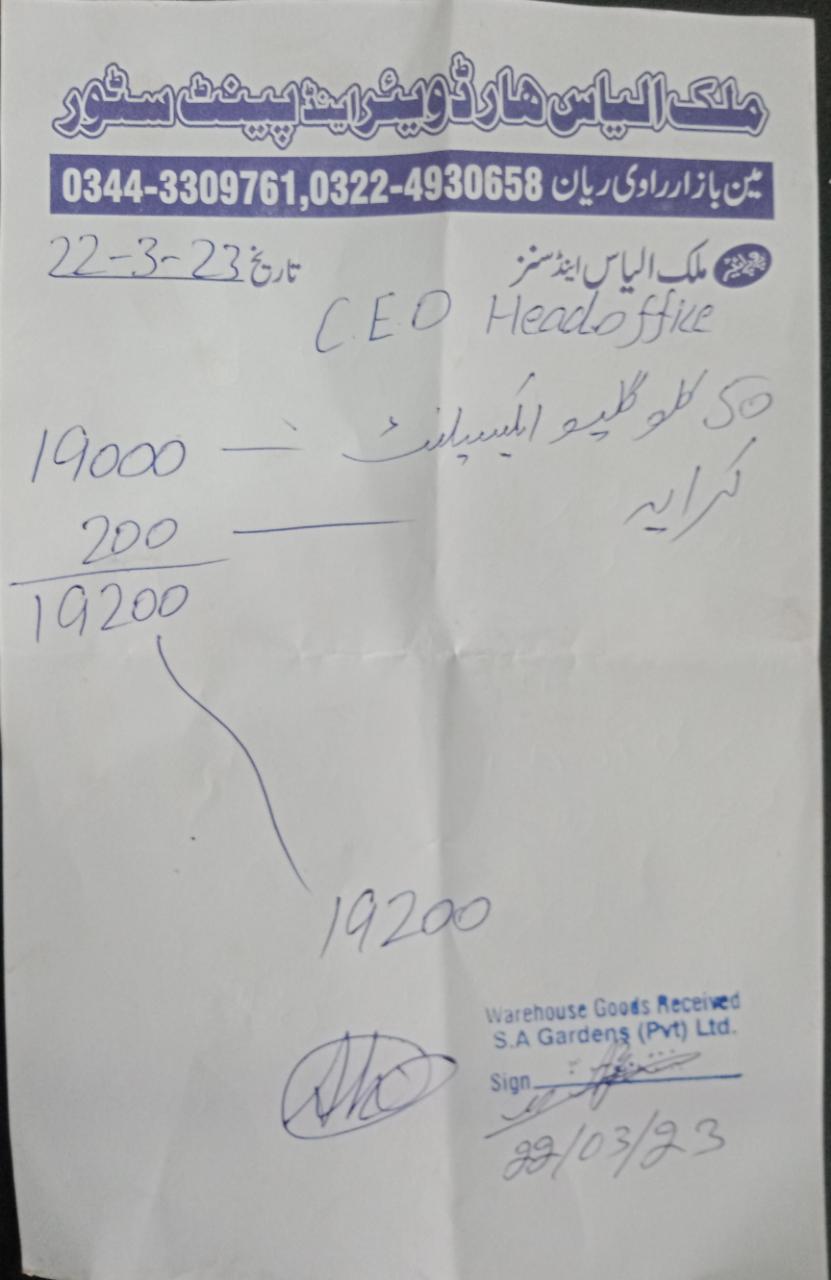 ملک الیاس ھارڈویئر اینڈ پینٹ سٹور
مین بازار راوی ریان 0344-3309761,0322-4930658
ملک الیاس اینڈ سنز تاریخ 22-3-23
C.E.O Head office
50 کلو گلیو ایکسیلنٹ 19000
کرایہ 200
19200
19200
Warehouse Goods Received
S.A Gardens (Pvt) Ltd.
Sign
22/03/23